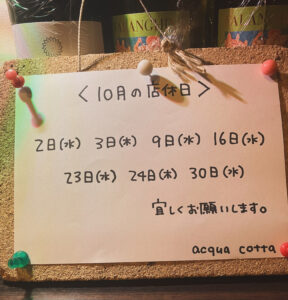 <10月の店休日>
2日(水) 3日(木) 9日(水) 16日(水)
23日(水) 24日(木) 30日(水)
宜しくお願いします。
acqua cotta